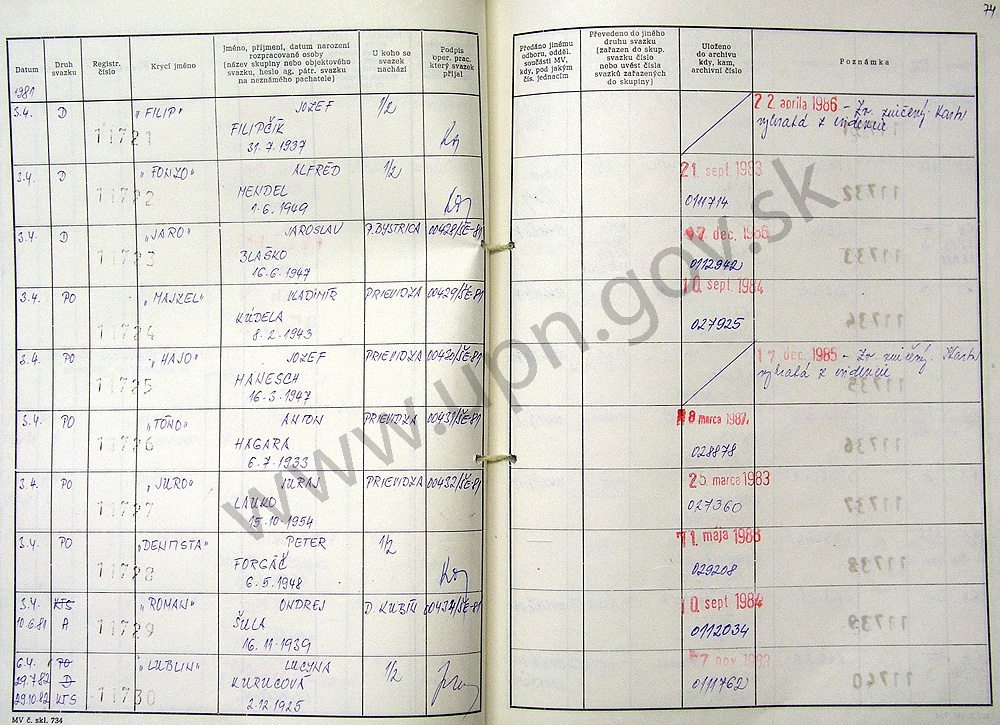 74
Datum
Druh svazku
Registr. číslo
Krycí jméno
Jméno, příjmení, datum narození rozpracované osoby (název skupiny nebo objektového svazku, heslo ag. pátr. svazku na neznámého pachatele)
U koho se svazek nachází
Podpis oper. prac. který svazek přijal
Předáno jinému odboru, odděl. součásti MV, kdy, pod jakým čís. jednacím
Převedeno do jiného druhu svazku (zařazen do skup. svazku číslo nebo uvést čísla svazků zařazených do skupiny)
Uloženo do archivu kdy, kam, archivní číslo
Poznámka
1981
3.4. D 11721 "FILIP" JOZEF 1/2
FILIPČÍK
31.7.1937
22. apríla 1986 - Zv. zničený. Karta
vybratá z evidencie
3.4. D 11722 "FONZO" ALFRÉD 1/2
MENDEL
1.6.1949
21. sept. 1983
0111714
3.4. D 11723 "JARO" JAROSLAV P. BYSTRICA 00428/ŠE-81
BLAŠKO
16.6.1947
17. dec. 1986
0112942
3.4. PO 11724 "MAJZEL" VLADIMÍR PRIEVIDZA 00429/ŠE-81
KÚDELA
8.2.1943
10. sept 1984
027925
3.4. PO 11725 "HAJO" JOZEF PRIEVIDZA 00430/ŠE-81
HANESCH
16.3.1947
17. dec. 1985 - Zv. zničený. Karta
vybratá z evidencie
3.4. PO 11726 "TÓNO" ANTON PRIEVIDZA 00431/ŠE-81
HAGARA
6.7.1933
18. marca 1987
028878
3.4. PO 11727 "JURO" JURAJ PRIEVIDZA 00432/ŠE-81
LAUKO
15.10.1954
25. marca 1983
027360
3.4. PO 11728 "DENTISTA" PETER 1/2
FORGÁČ
6.5.1948
11. mája 1988
029208
3.4. KTS 11729 "ROMAN" ONDREJ D. KUBÍN 00434/ŠE-81
10.6.81 A ŠULA
16.11.1939
10. sept 1984
0112034
6.4. PO 11730 "LUBLIN" LUCYNA 1/2
29.7.82 D KURUCOVÁ
29.10.82 KTS 2.12.1925
7. nov 1983
0111762
MV č. skl. 734
www.upn.gov.sk